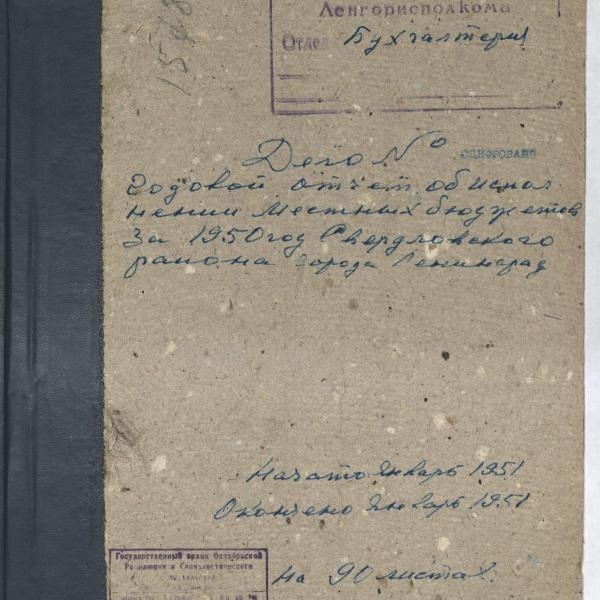 1548
Ленгорисполкома
Отдел Бухгалтерия
Дело №
ОЦИФРОВАНО
Годовой отчет об испол
нении местных бюджетов
за 1950 год Свердловского
района города Ленинград
Начато январь 1951
Окончено январь 1951
Государственный архив Октябрьской
Революции и Социалистического
На 90 листах.